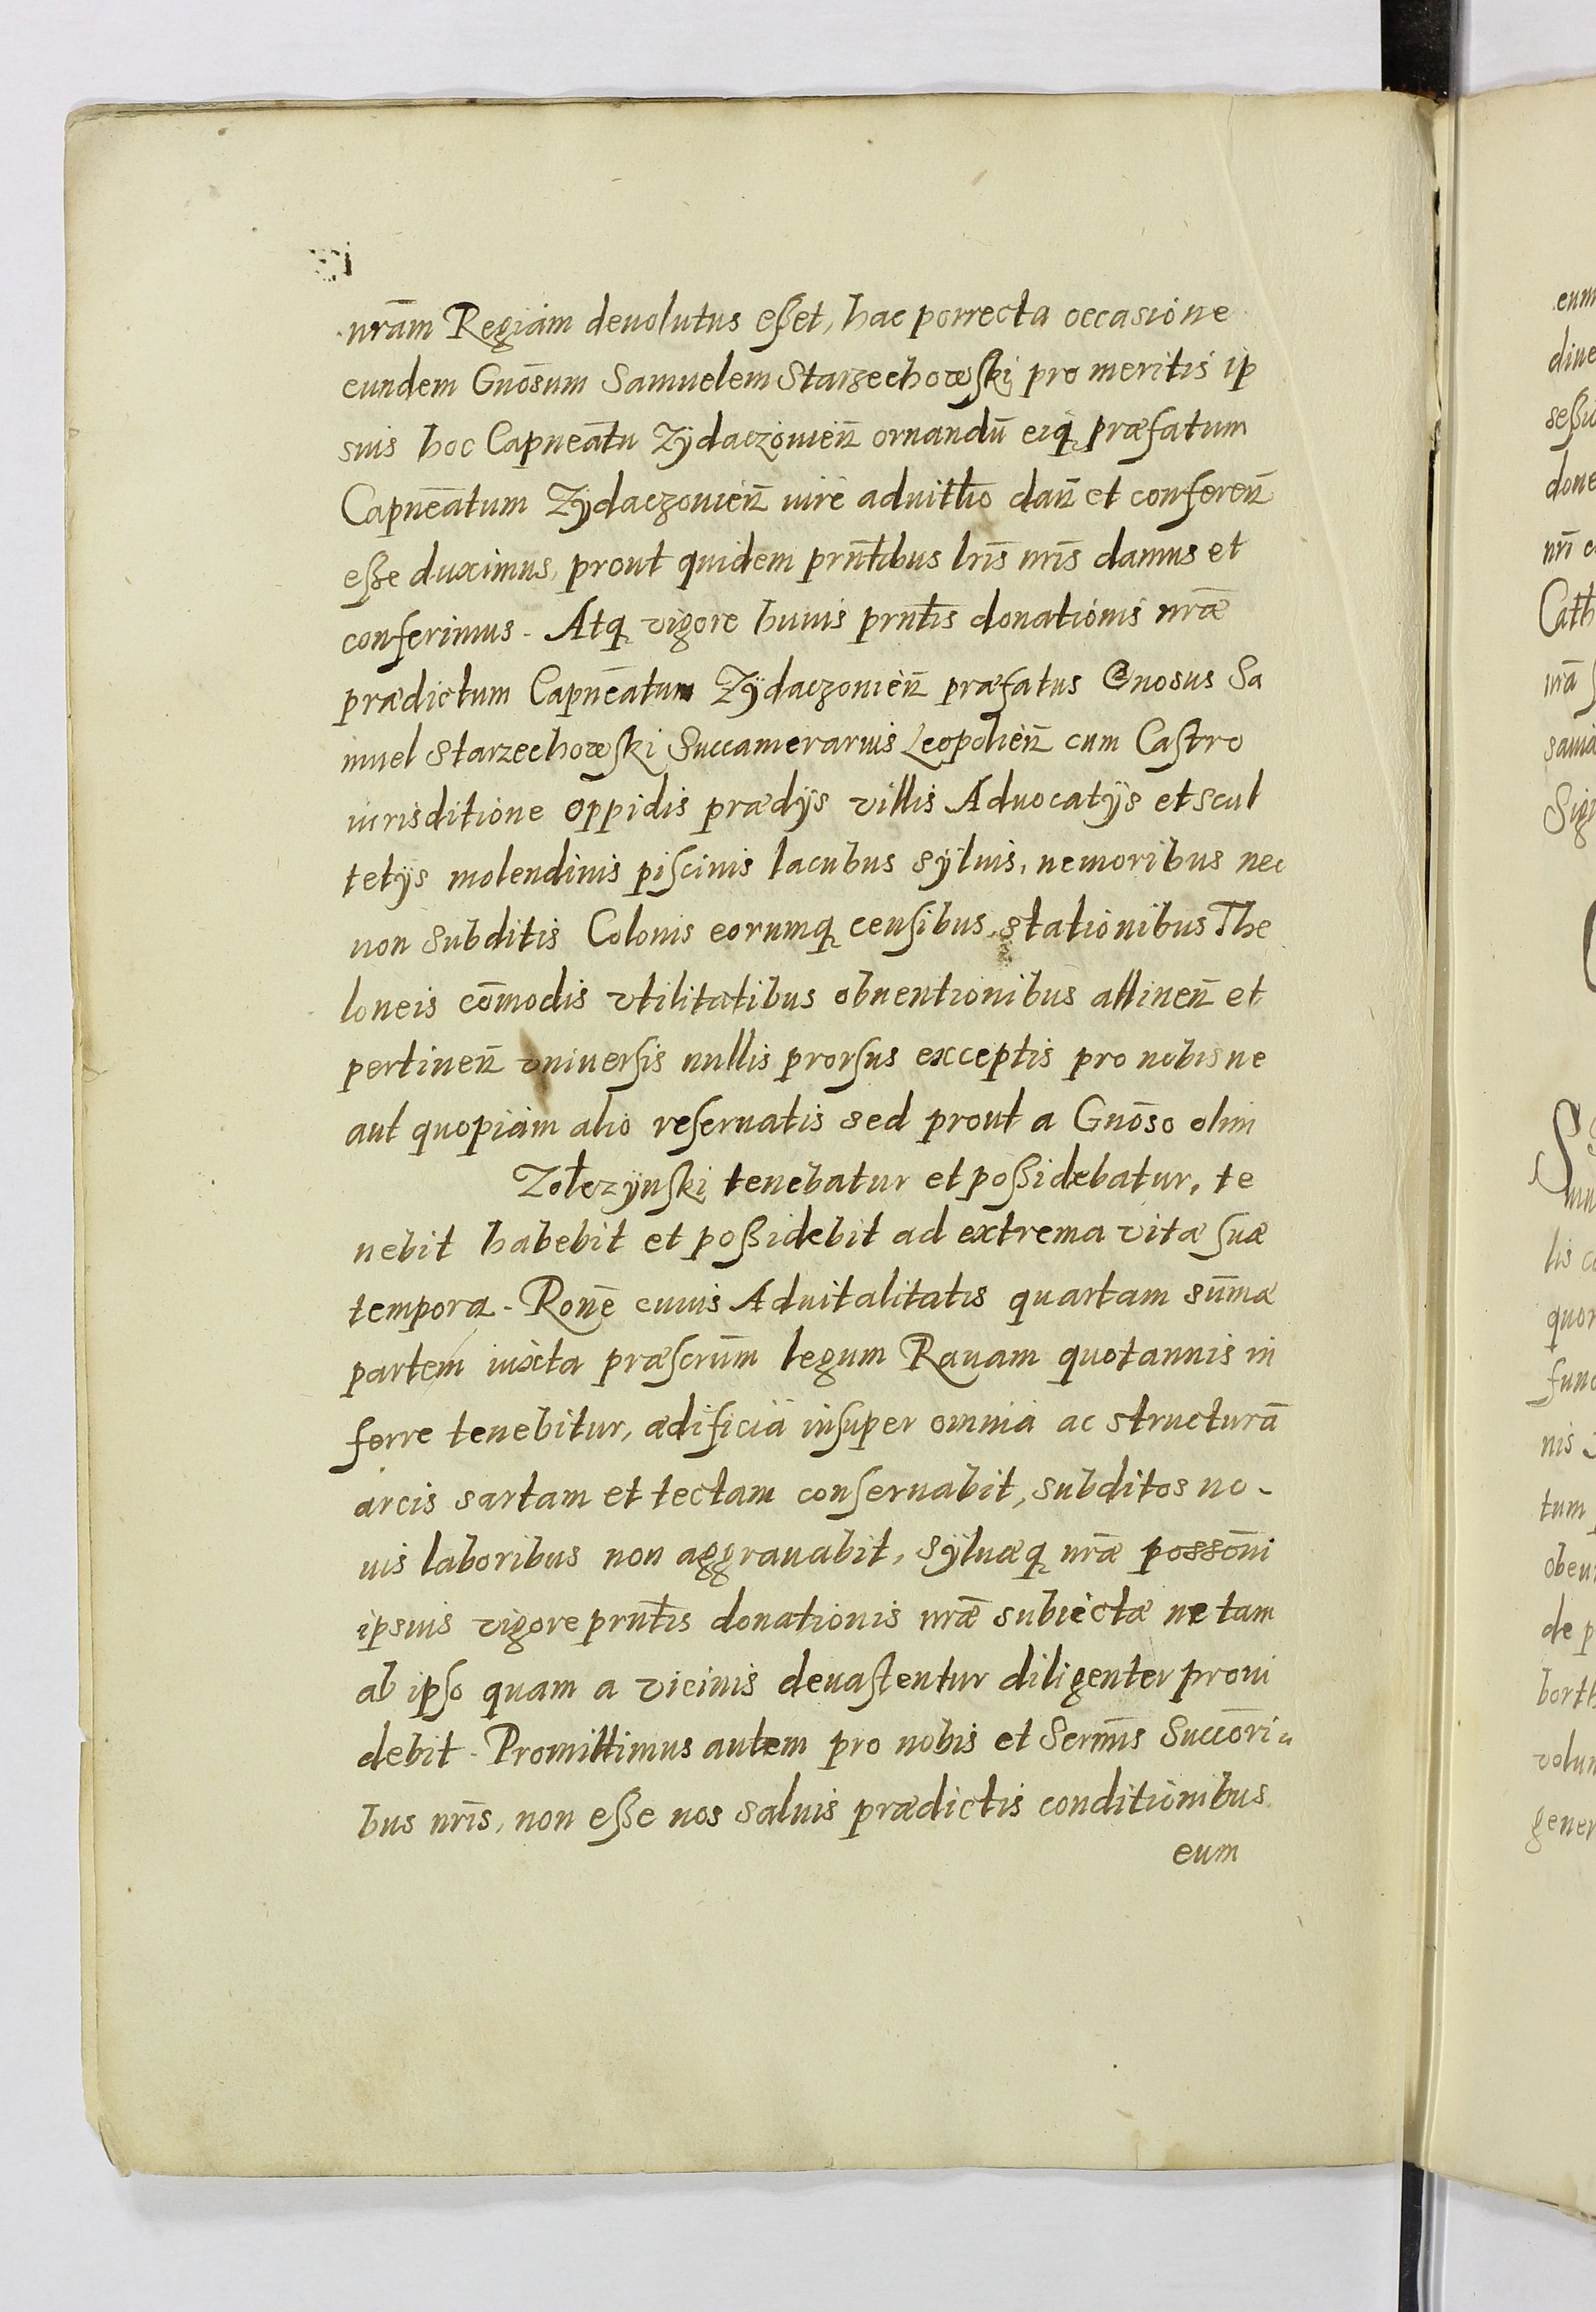 nrãm Regiam deuolutus eßet, hac porrecta occasione
eundem Gnõsum Samuelem Starzechowski pro meritis ip
suis hoc Capneãtu Zÿdaczouien̄ ornandũ eiq, præfatum
Capneãtum Zÿdaczouien̄ iure aduitłio dan̄ et conferen̄
eße duximus, prout quidem prn̄tibus lrĩs nrĩs damus et
conferimus. Atq, vigore huius prn̄tis donationis nræ̃
prædictum Capneãtum Zÿdaczouien̄ præfatus Gnosus Sa
muel Starzechowski Succamerarius Leopolien̄ cum Castro
iurisditione oppidis prædÿs villis Aduocatÿs et scul
tetÿs molendinis piscinis lacubus sÿluis, nemoribus nec
non subditis Colonis eorumq, censibus, stationibus The
loneis cõmodis vtilitatibus obuentionibus attinen̄ et
pertinen̄ vniuersis nullis prorsus exceptis pro nobis ne
aut quopiam alio reseruatis sed prout a Gnõso olim
Zołczÿnski tenebatur et poßidebatur, te
nebit habebit et poßidebit ad extrema vitæ suæ
tempora. Ronẽ cuius Aduitalitatis quartam sũmæ
partem iuxta præscrũm legum Rauam quotannis in
ferre tenebitur, ædificia insuper omnia ac structurã
arcis sartam et tectam conseruabit, subditos no-
uis laboribus non aggrauabit, sÿluæq, nræ̃ possõni
ipsius vigore prn̄tis donationis nræ̃ subiectæ ne tam
ab ipso quam a vicinis deuastentur diligenter proui
debit. Promittimus autem pro nobis et Serm̃is Succõri
bus nrĩs, non eße nos saluis prædictis conditionibus
eum